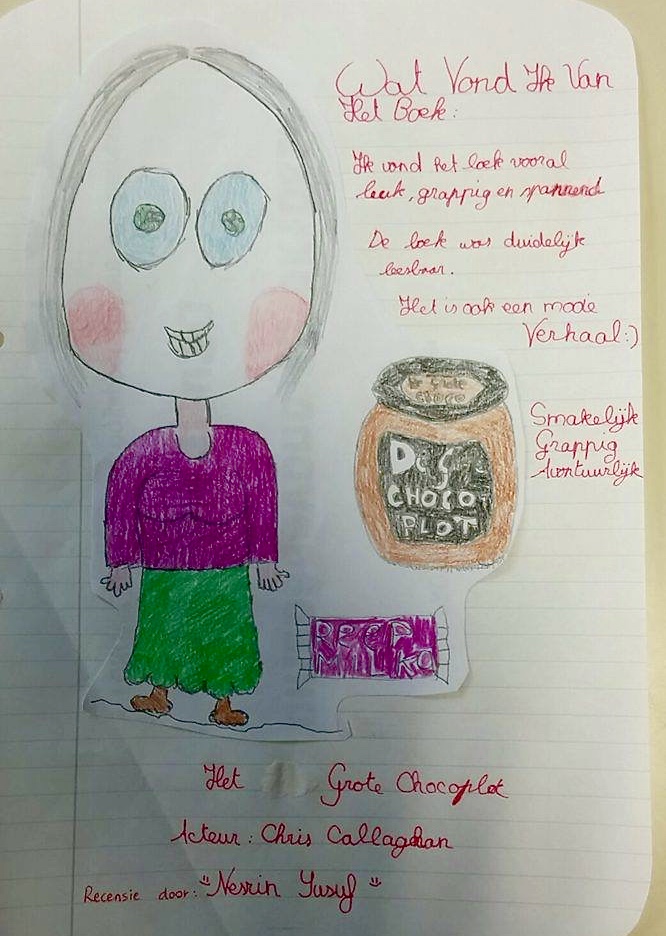 Wat Vond Ik Van
Het Boek:
Ik vond het boek vooral
leuk, grappig en spannend
De boek was duidelijk
leesbaar.
Het is ook een mooie
Verhaal:)
De Grote
CHOCO
De G
CHOCO
PLOT
Smakelijk
Grappig
Avontuurlijk
REEP
MILKA
Het Grote Chocoplot
Acteur: Chris Callaghan
Recensie door: "Nesrin Yusuf"